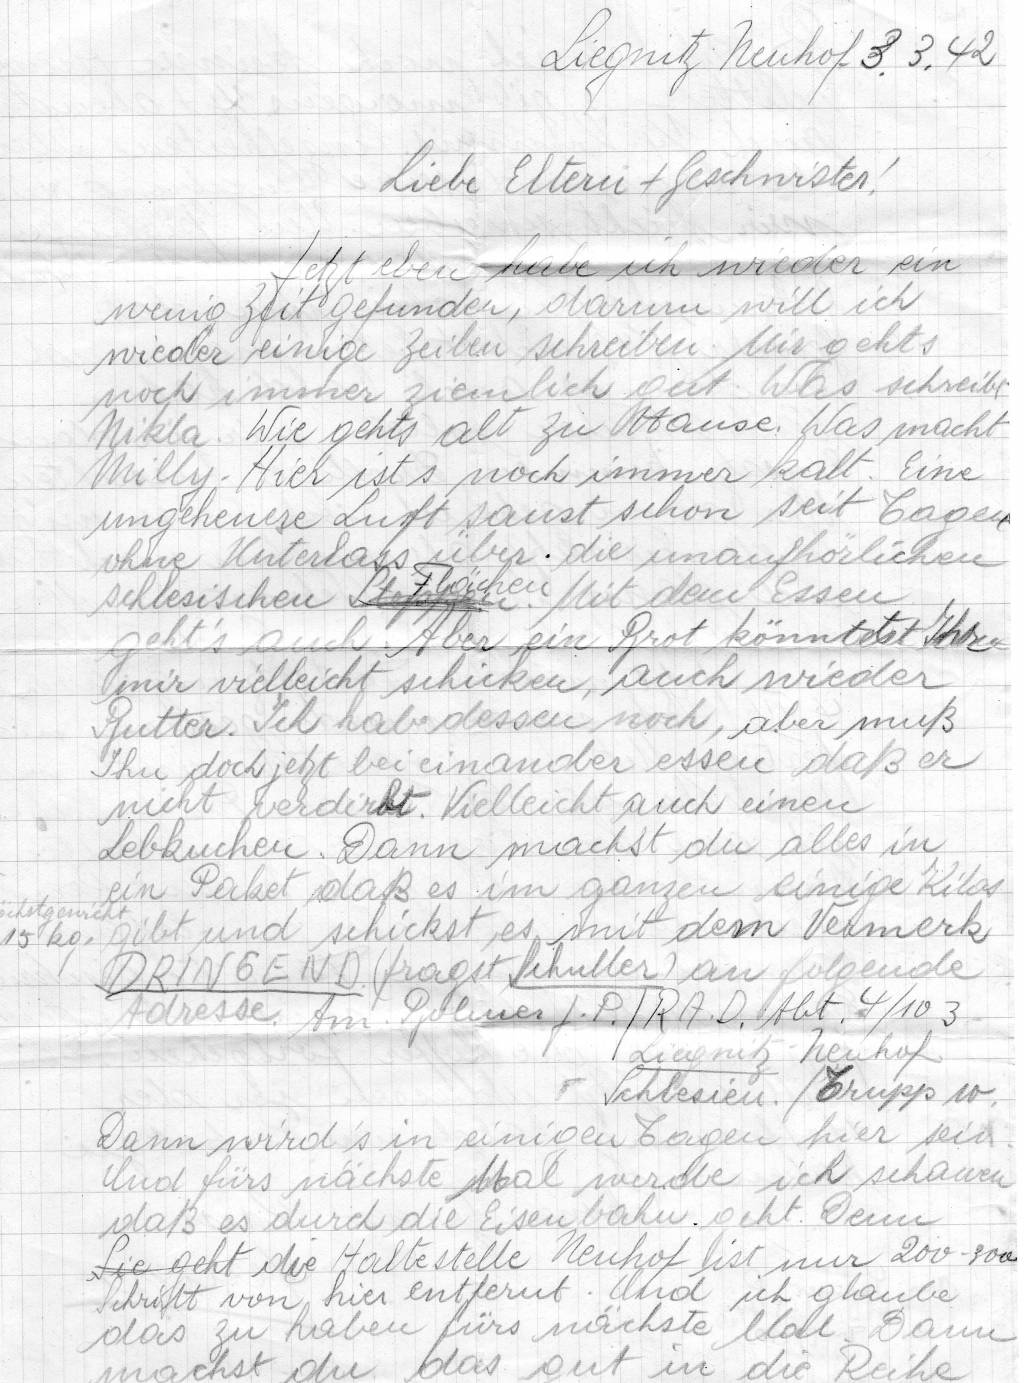 Liegnitz Neuhof 3. 3. 42
Liebe Eltern + Geschwister!
Jetzt eben habe ich wieder ein
wenig Zeit gefunden, darum will ich
wieder einige Zeilen schreiben. Mir gehts
noch immer ziemlich gut. Was schreibt
Nikla. Wie gehts alt zu Hause. Was macht
Milly. Hier ist's noch immer kalt. Eine
ungeheure Luft saust schon seit Tagen
ohne Unterlass über die unaufhörlichen
schlesischen Flächen. Mit dem Essen
geht's auch. Aber ein Brot könntet Ihr
mir vielleicht schicken, auch wieder
Butter. Ich habe dessen noch, aber muß
Ihn doch jetzt beieinander essen daß er
nicht verdirbt. Vielleicht auch einen
Lebkuchen. Dann machst du alles in
ein Paket daß es im ganzen einige Kilos
gibt und schickst es mit dem Vermerk
Höchstgewicht
15 kg.
DRINGEND (fragst Schuller) an folgende
Adresse. Am. J. P. / R.A.D. Abt. 4/103
Liegnitz-Neuhof
Schlesien. / Trupp 10.
Dann wird's in einigen Tagen hier sein.
Und fürs nächste Mal werde ich schauen
daß es durch die Eisenbahn geht. Denn
Sie geht die Haltestelle Neuhof ist nur 200-300
Schritt von hier entfernt. Und ich glaube
das zu haben fürs nächste Mal. Dann
machst du das gut in die Reihe